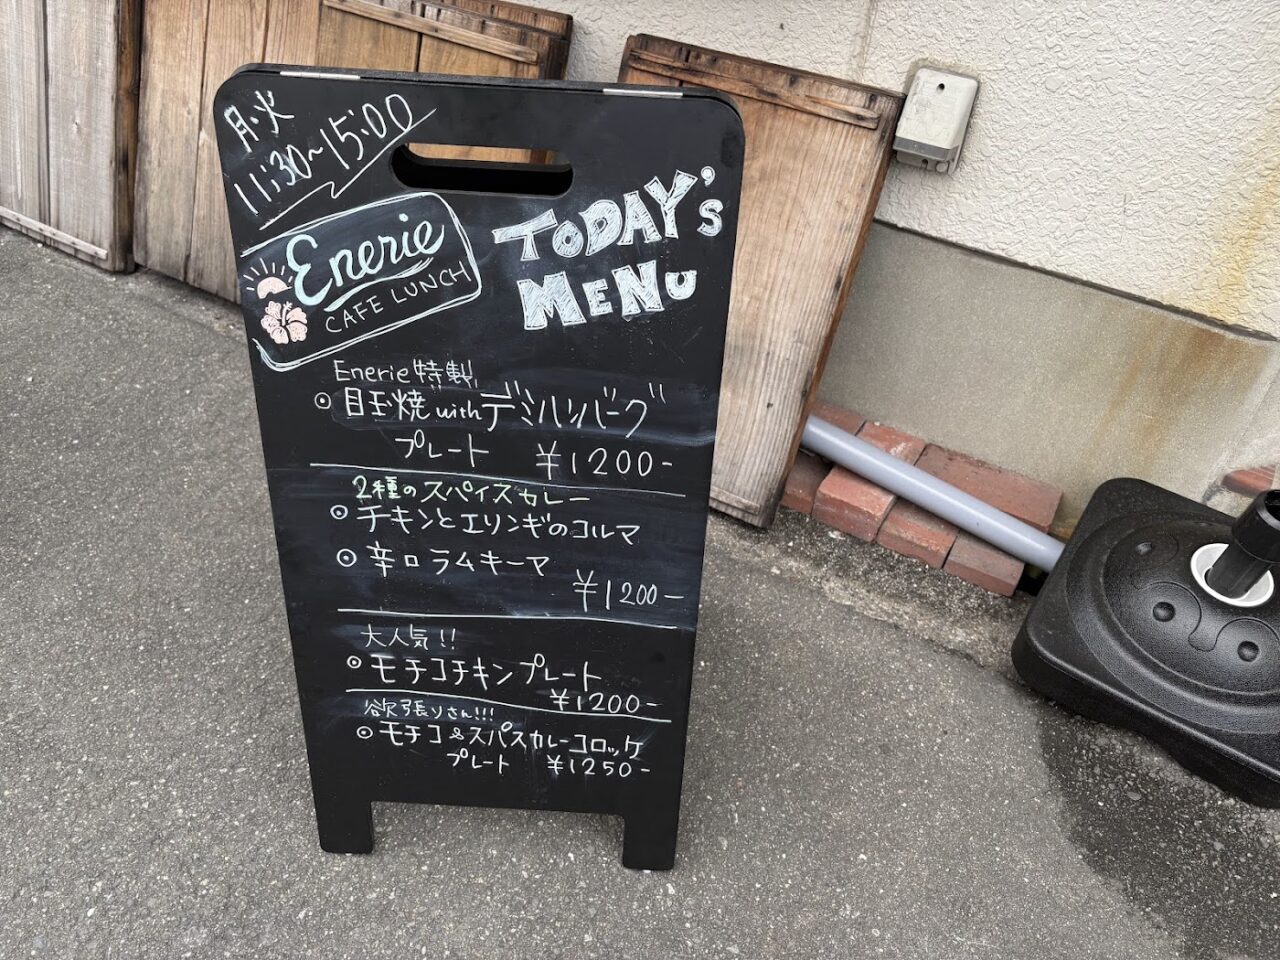 月・火
11:30~15:00
Enerie
CAFE LUNCH
TODAY's
MENU
Enerie特製
⊙目玉焼withデミハンバーグ
プレート ¥1200-
2種のスパイスカレー
⊙チキンとエリンギのコルマ
⊙辛口ラムキーマ
¥1200-
大人気!!
⊙モチコチキンプレート
¥1200-
欲張りさん!!!
⊙モチコ&スパスカレーコロッケ
プレート ¥1250-